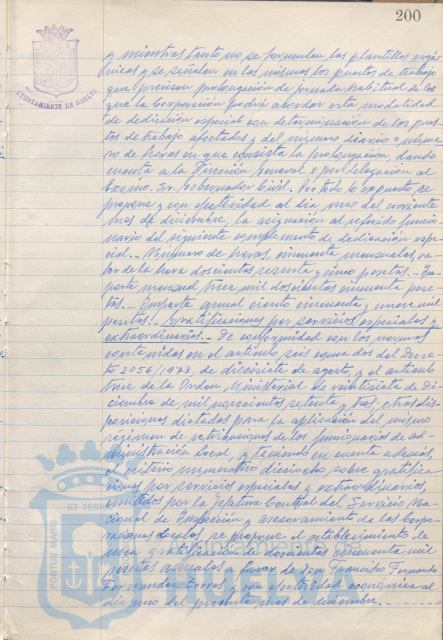 200
AYUNTAMIENTO DE HUELVA
y mientras tanto, no se formulen las plantillas orgá-
nicas y se señalen en las mismas los puestos de trabajo
que precisen prolongación de jornada habitual de los
que la Corporación podrá abordar esta modalidad
de dedicación especial con determinación de los pues-
tos de trabajo afectados y del número diario o núme-
ro de horas en que consista la prolongación, dando
cuenta a la Dirección General o por delegación al
Excmo. Sr. Gobernador Civil.- Por todo lo expuesto, se
propone y con efectividad al día uno del corriente
mes de diciembre, la asignación al referido funcio-
nario del siguiente complemento de dedicación espe-
cial.- Número de horas cincuenta mensuales, va-
lor de la hora doscientos sesenta y cinco pesetas.- Im-
porte mensual trece mil doscientos cincuenta pese-
tas.- Importe anual ciento cincuenta y nueve mil
pesetas.- Gratificaciones por servicios especiales y
extraordinarios.- De conformidad con las normas
contenidas en el artículo seis, dos del Decre-
to 2056/1973, de diecisiete de agosto, y el artículo
trece de la Orden Ministerial de veintisiete de Di-
ciembre de mil novecientos setenta y tres, otras dis-
posiciones dictadas para la aplicación del mismo
régimen de retribuciones de los funcionarios de ad-
ministración Local, y teniendo en cuenta además,
el criterio numerativo dieciocho sobre gratifica-
ciones por servicios especiales y extraordinarios,
emitidos por la Jefatura Central del Servicio Na-
cional de Inspección y asesoramiento de las Corpo-
raciones Locales, se propone el establecimiento de
una gratificación de doscientas cincuenta mil
pesetas anuales a favor de don Francisco Fernando
Fernández Torres y con efectividad económica al
día uno del presente mes de diciembre.
PORTUS MARIS ET TERRAE
HUELVA